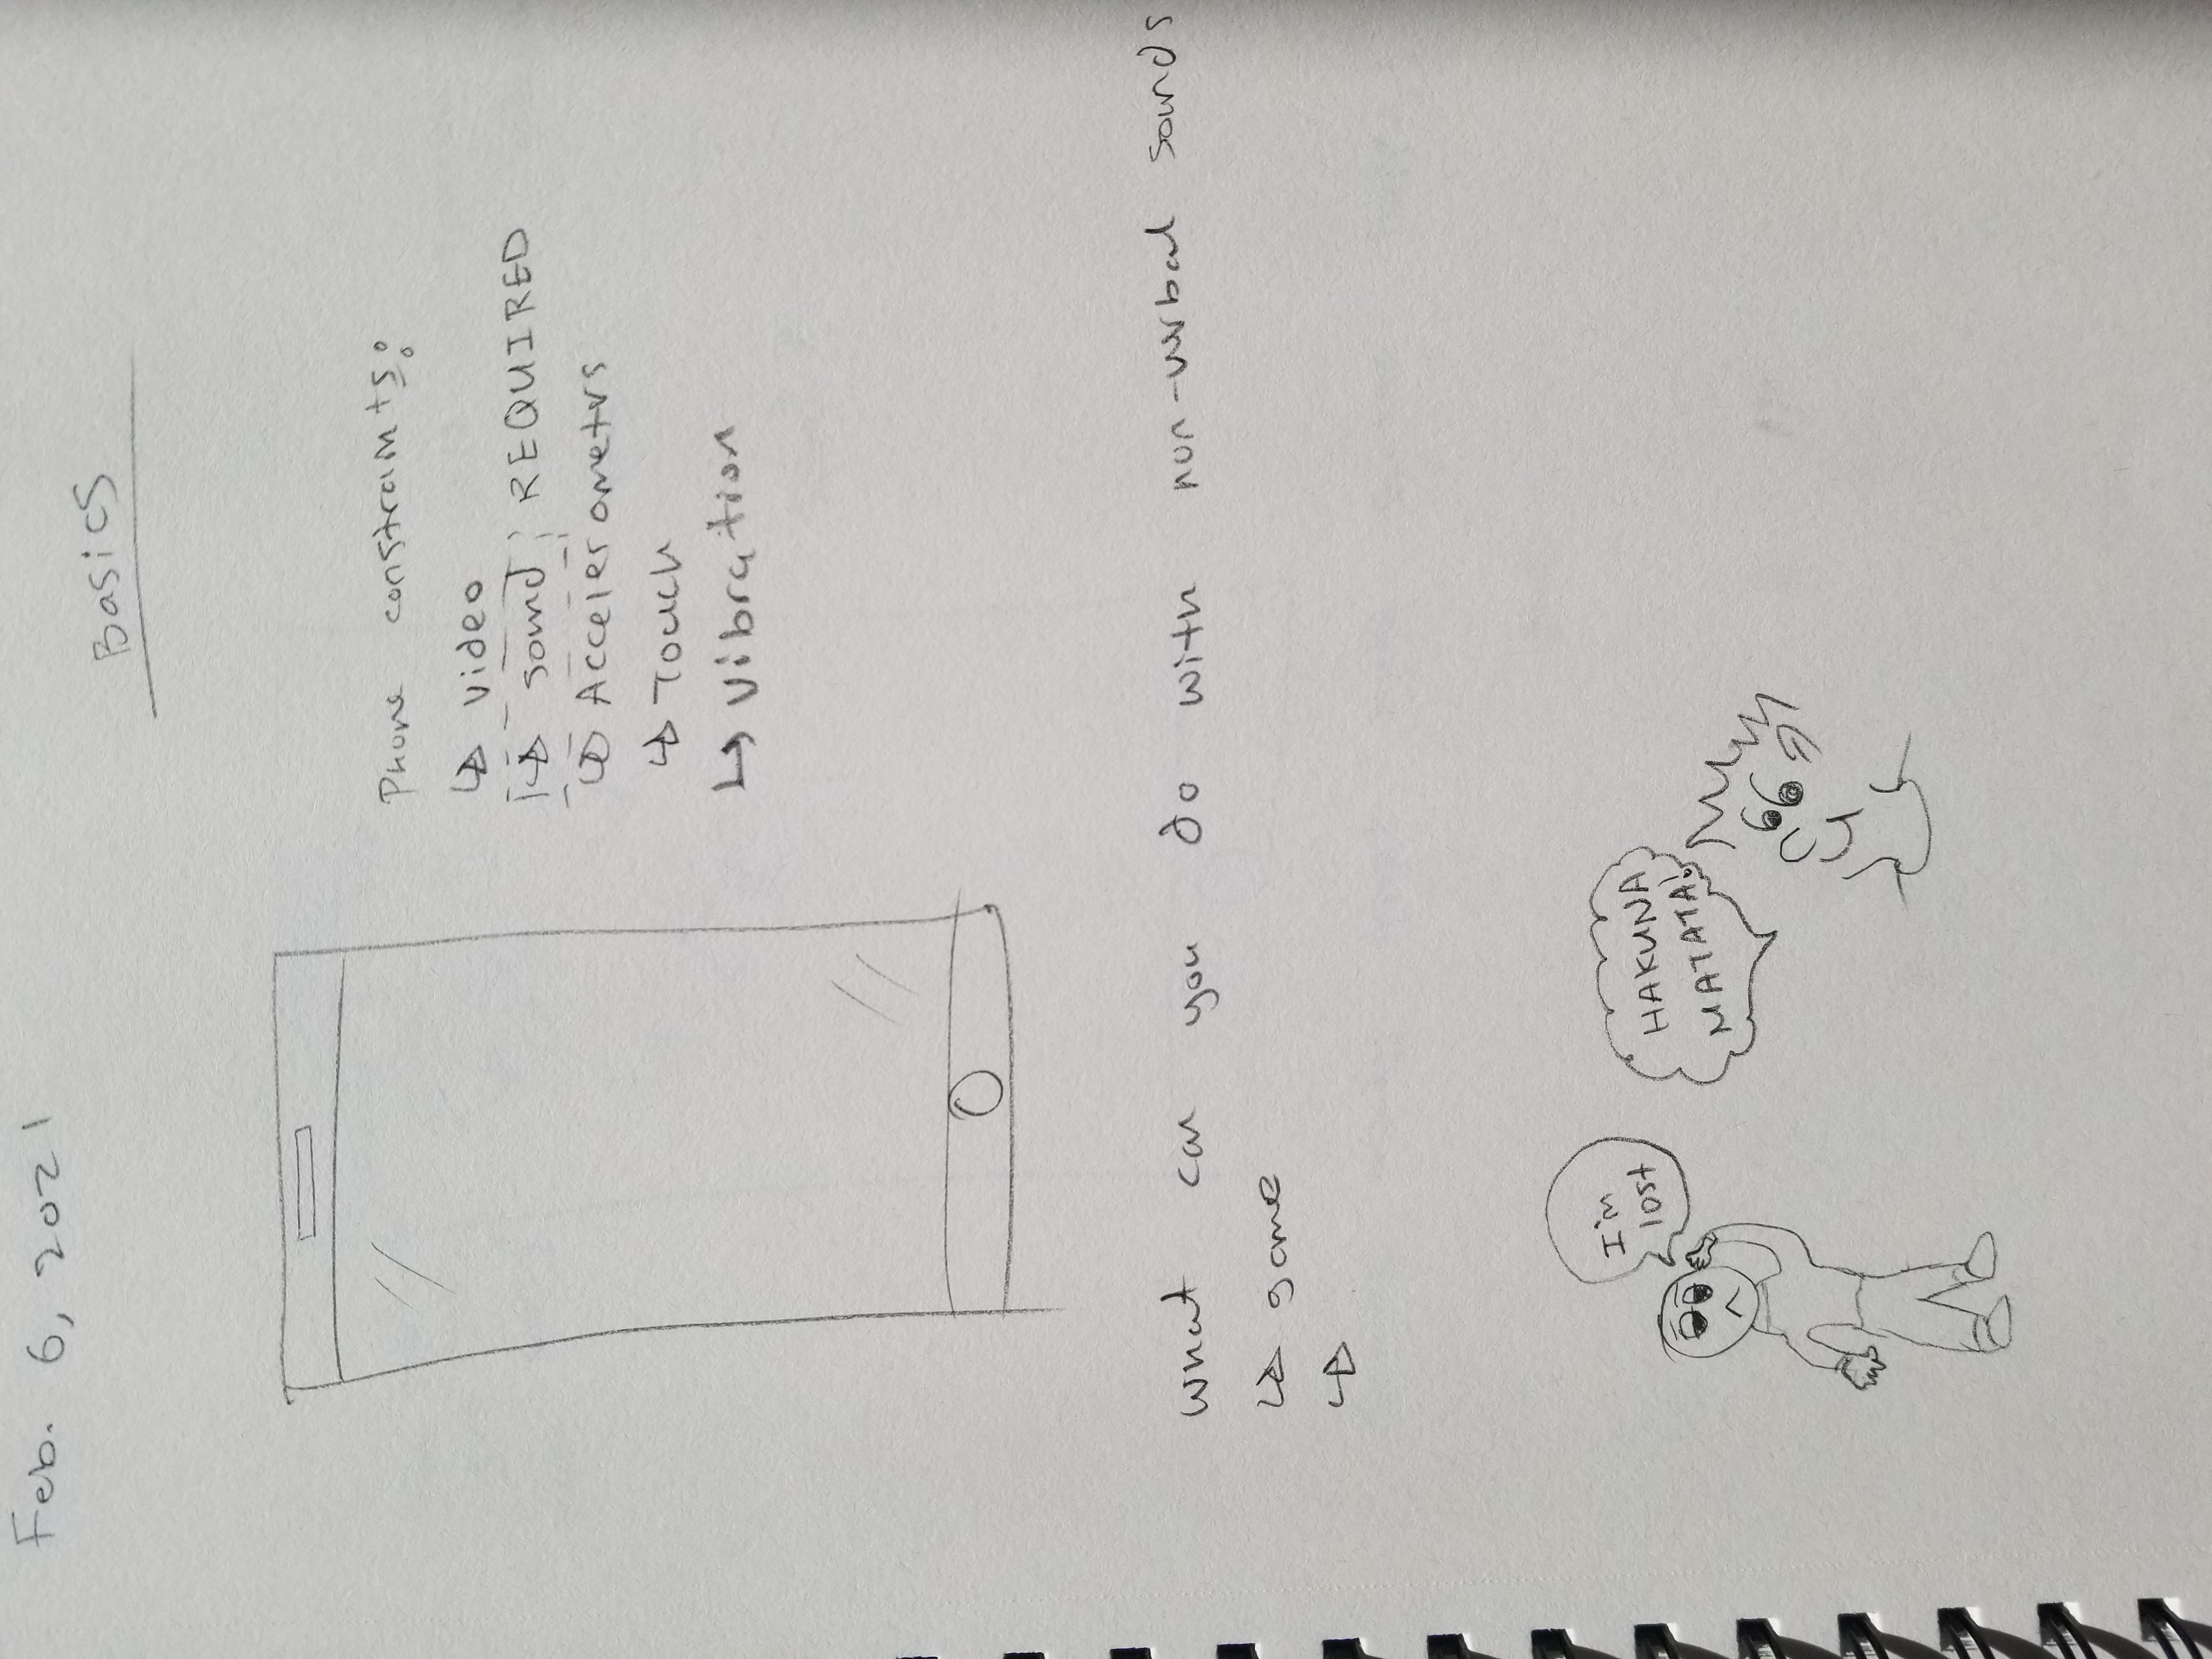 Feb. 6, 2021
Basics
Phone constraints:
↳ video
↳ sound REQUIRED
↳ Accelerometrs
↳ Touch
↳ Vibration
what can you do with non-verbal sounds
↳ game
↳
I'm
lost
HAKUNA
MATATA!